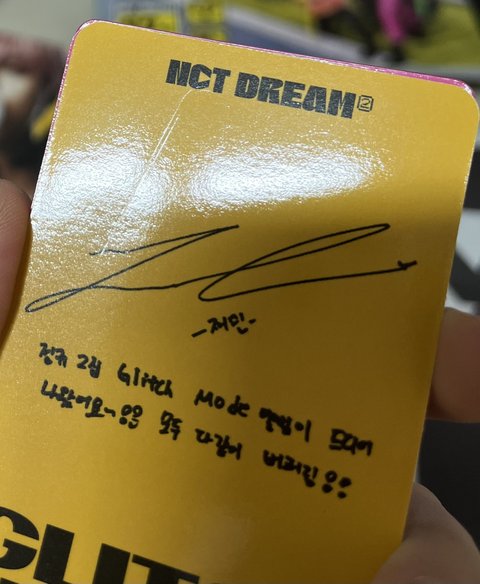 NCT DREAM 2
-재민-
정규 2집 Glitch Mode 앨범이 드디어
나왔어요~!! 모두 다같이 버퍼링!!
GLIT